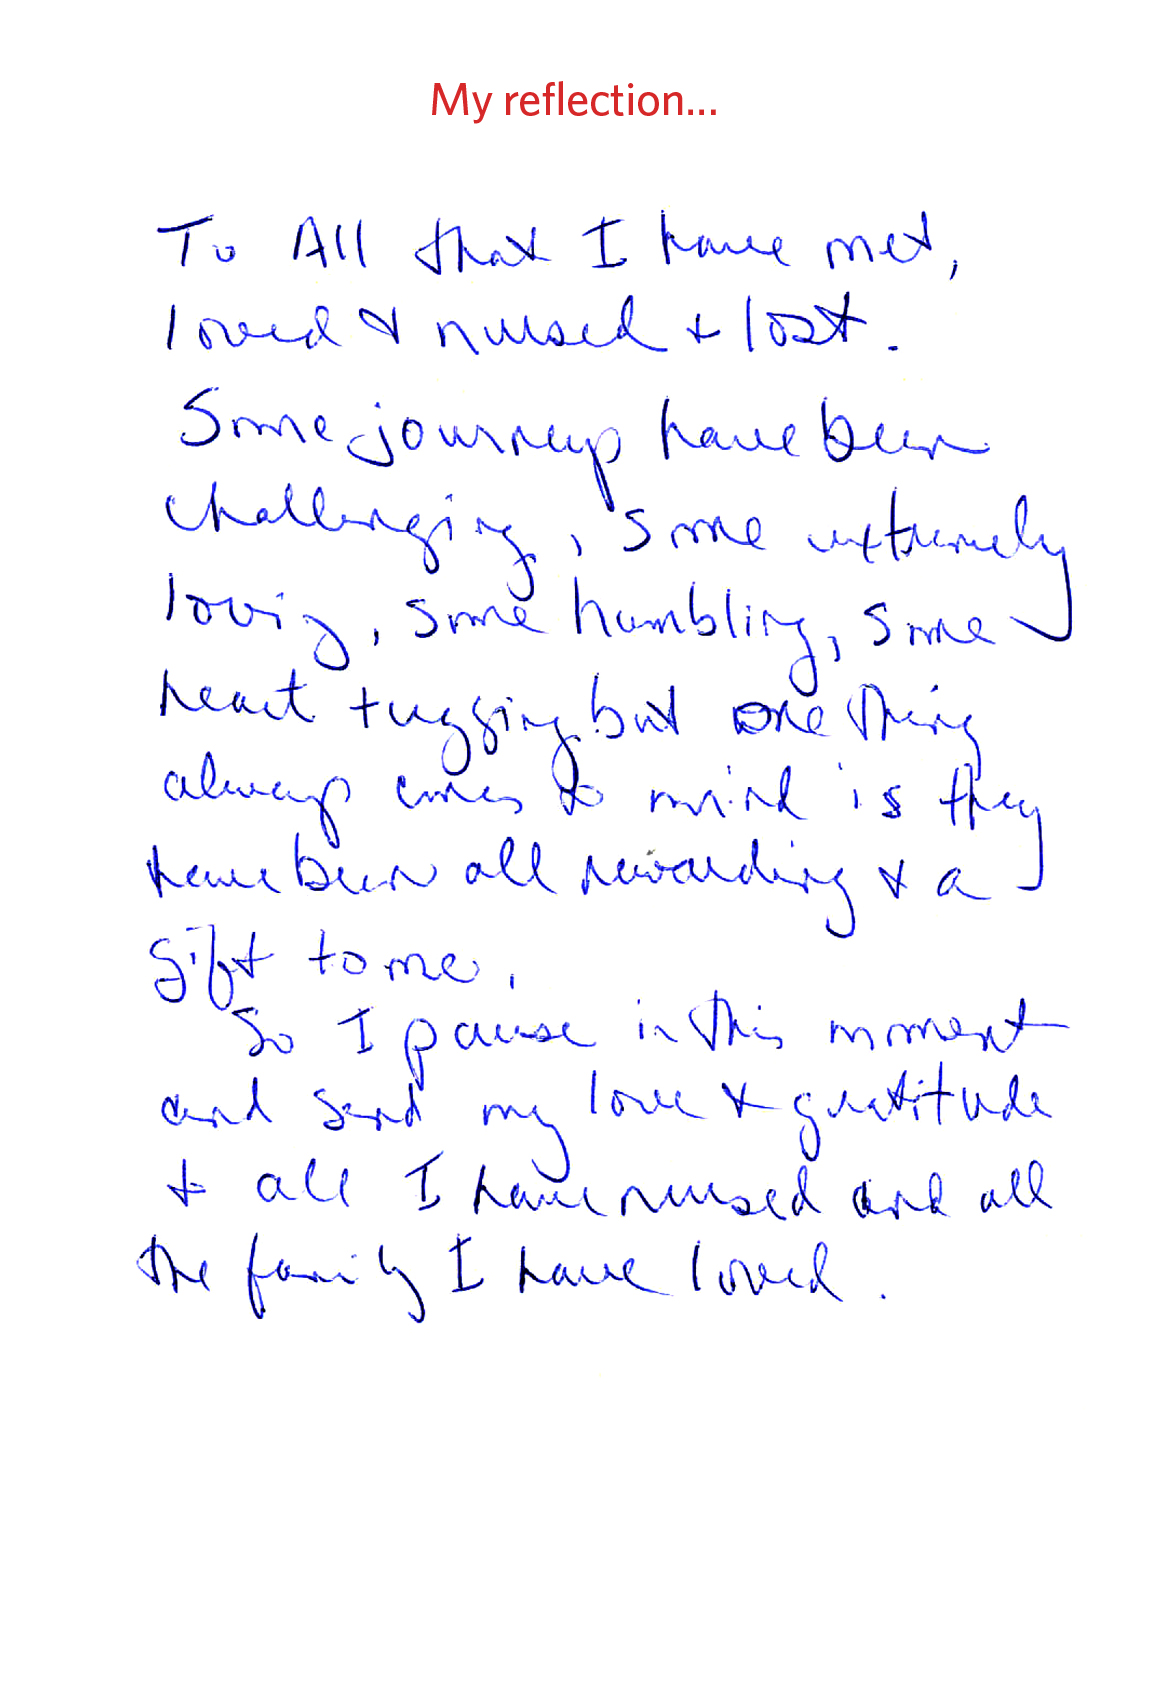 My reflection...
To All that I have met,
loved & nursed + lost.
Some journeys have been
challenging, some extremely
loving, some humbling, some
heart tugging but one thing
always comes to mind is they
have been all rewarding & a
gift to me.
So I pause in this moment
and send my love & gratitude
to all I have nursed and all
the family I have loved.